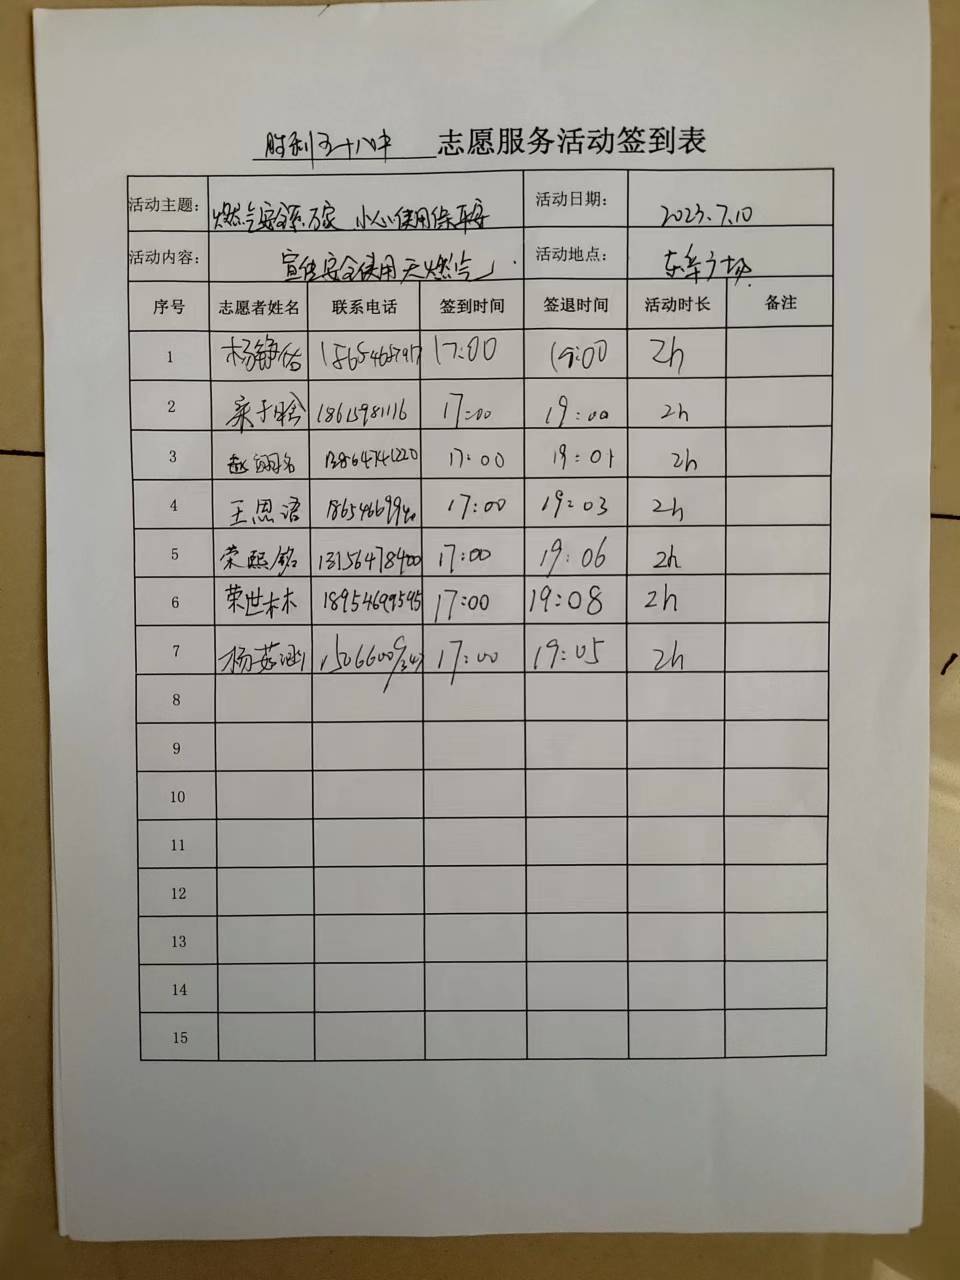 胜利五十八中 志愿服务活动签到表
活动主题: 燃气安全系万家 小心使用保平安 活动日期: 2023.7.10
活动内容: 宣传安全使用天燃气 活动地点:
序号 志愿者姓名 联系电话 签到时间 签退时间 活动时长 备注
1 17:00 19:00 2h
2 17:00 19:00 2h
3 17:00 19:01 2h
4 王思语 17:00 19:03 2h
5 荣熙铭 13156478400 17:00 19:06 2h
6 荣世林 18954699595 17:00 19:08 2h
7 杨茹涵 17:00 19:05 2h
8
9
10
11
12
13
14
15